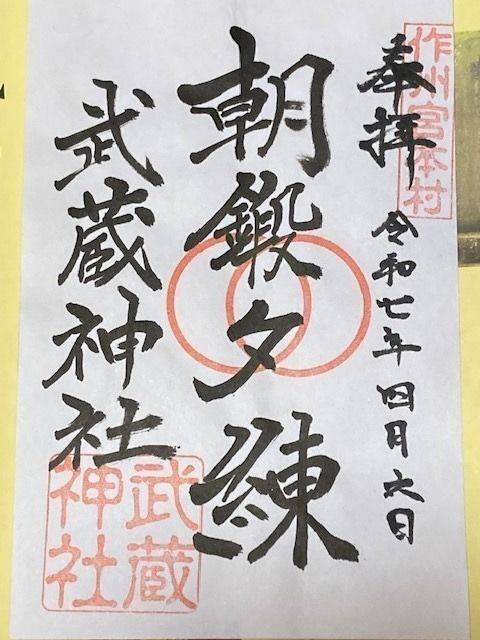 作州宮本村
奉拝
令和七年四月六日
朝鍛夕練
武蔵神社
武蔵
神社